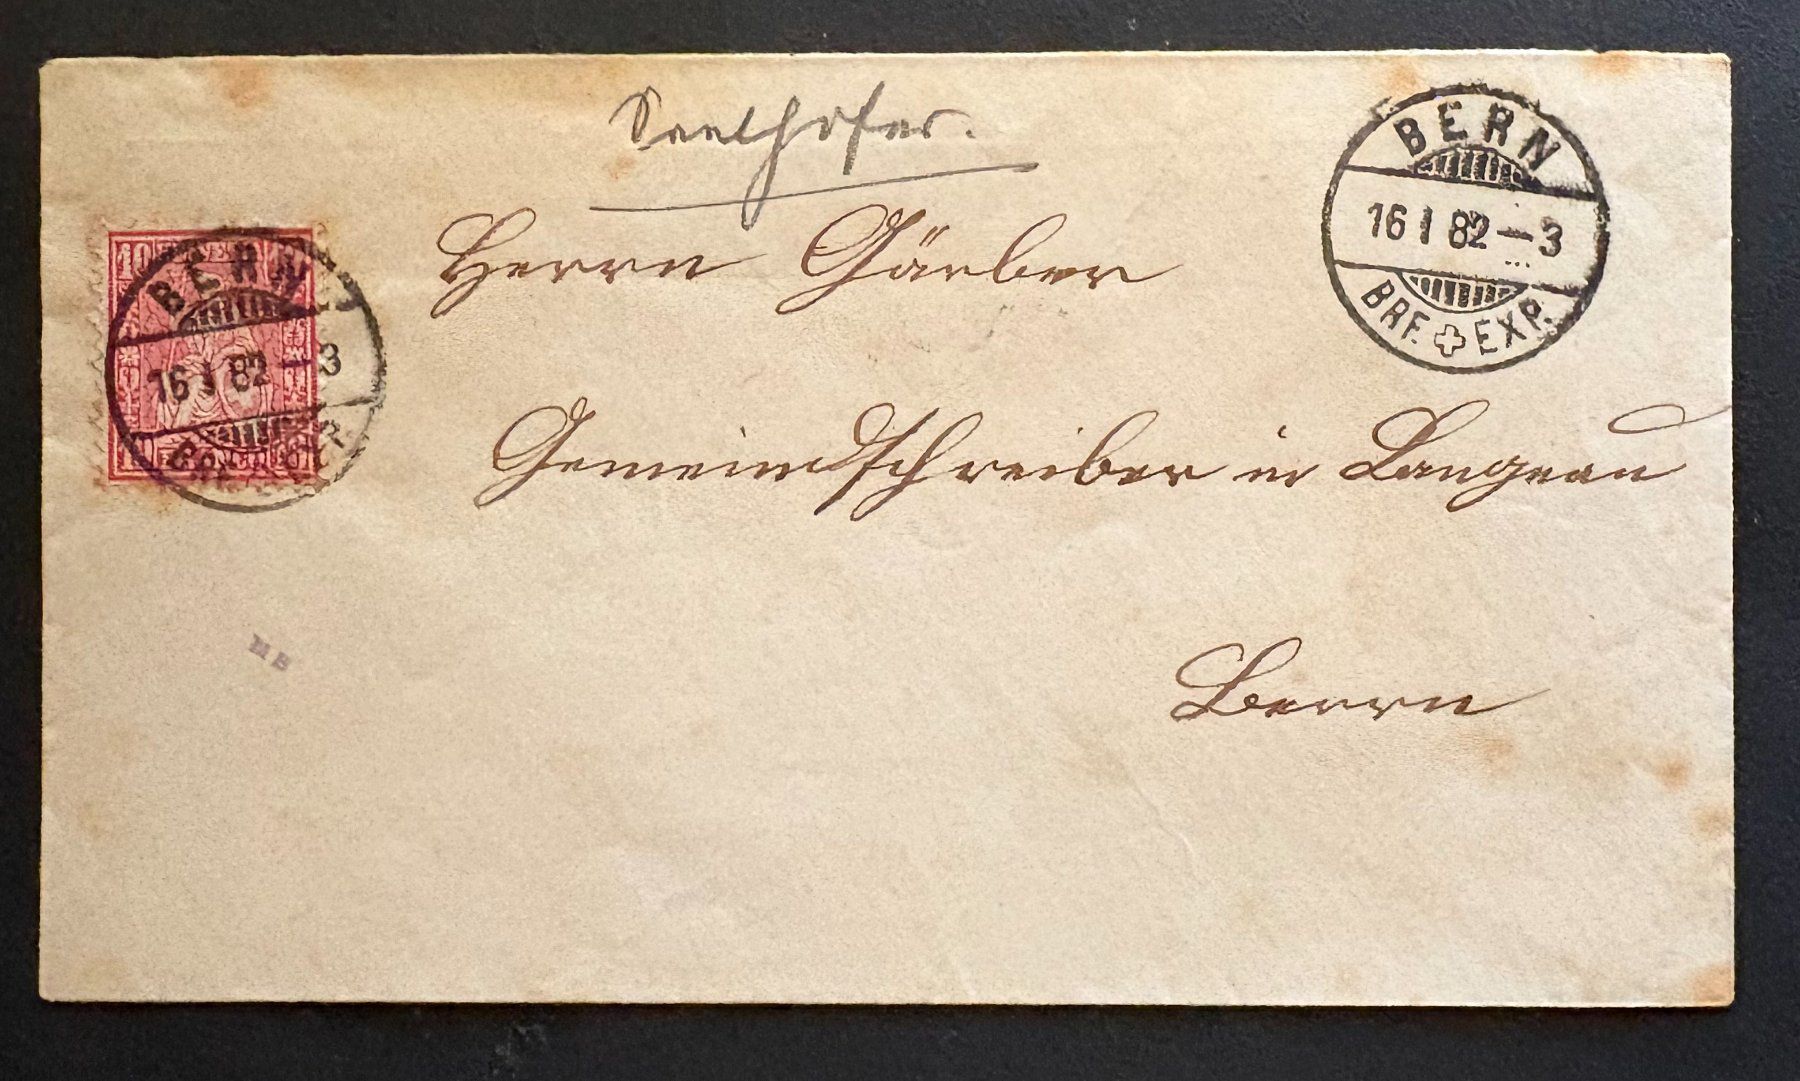 Seelhofer.
BERN
16 I 82–3
BRF. EXP.
10
BERN
16 I 82–3
Herrn Gärber
Gemeindschreiber in Langnau
Bern